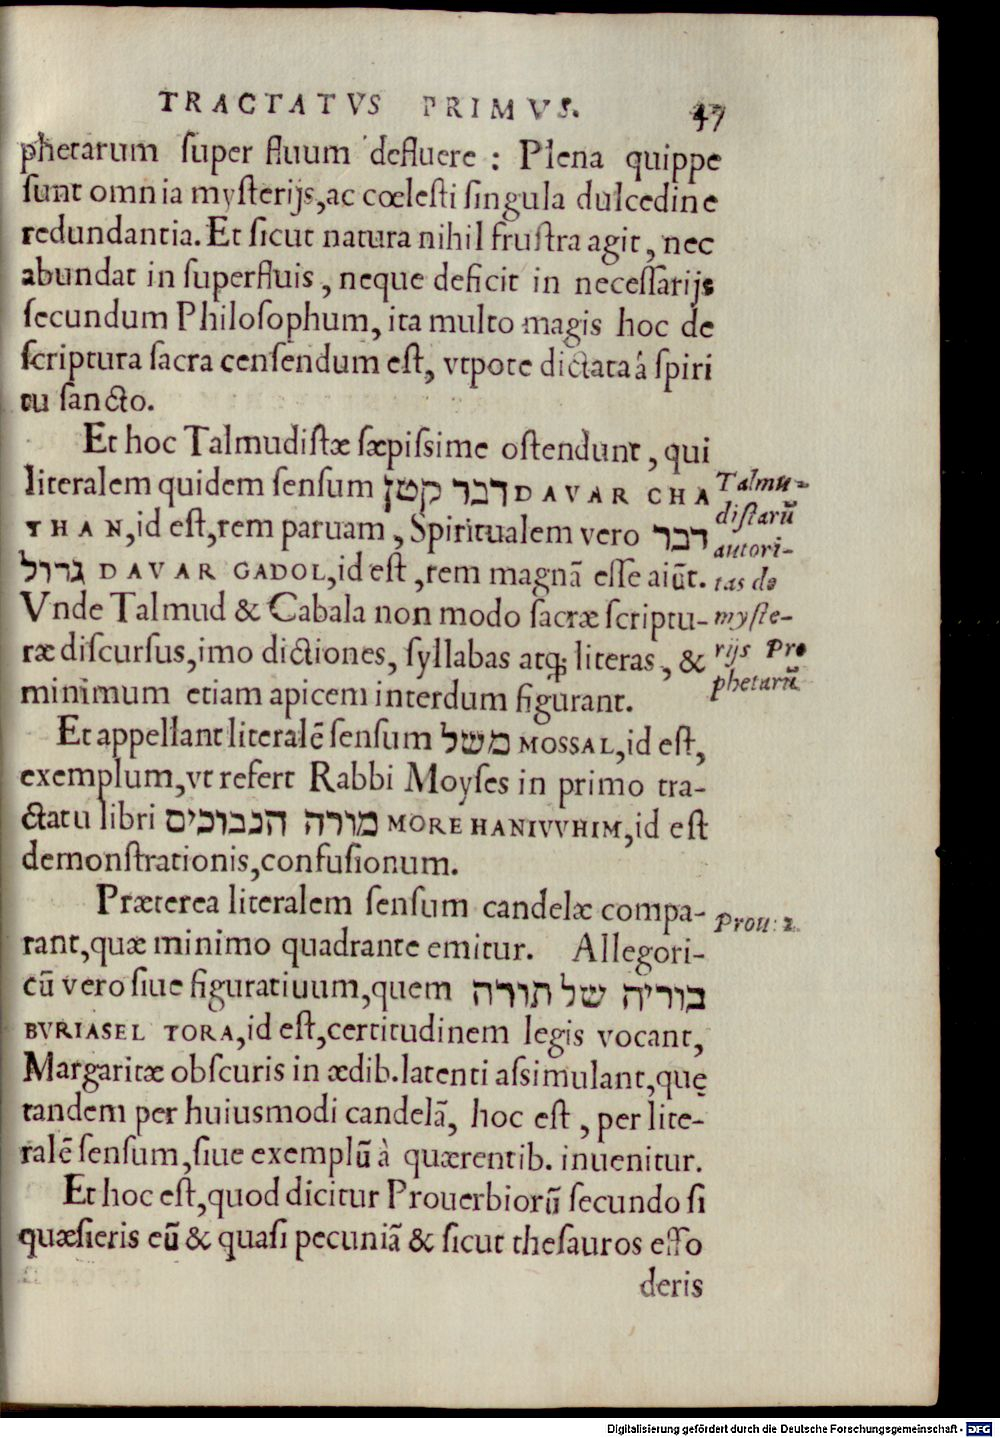 TRACTATVS PRIMVS. 47
phetarum ſuper fluum defluere : Plena quippe
ſunt omnia myſterijs, ac cœleſti ſingula dulcedine
redundantia. Et ſicut natura nihil fruſtra agit, nec
abundat in ſuperfluis, neque deficit in neceſſarijs
ſecundum Philoſophum, ita multo magis hoc de
ſcriptura ſacra cenſendum eſt, vtpote dictata á ſpiri
tu ſancto.
Et hoc Talmudiſtæ ſæpiſsime oſtendunt, qui
literalem quidem ſenſum דבר קטן DAVAR CHA
THAN, id eſt, rem paruam, Spiritualem vero דבר
גדול DAVAR GADOL, id eſt, rem magnā eſſe aiūt.
Vnde Talmud & Cabala non modo ſacræ ſcriptu-
ræ diſcurſus, imo dictiones, ſyllabas atq; literas, &
minimum etiam apicem interdum figurant.
Talmu-
diſtarū
autori-
tas de
myſte-
rijs Pro
phetarū
Et appellant literalē ſenſum משל MOSSAL, id eſt,
exemplum, vt refert Rabbi Moyſes in primo tra-
ctatu libri מורה הנבוכים MORE HANIVVHIM, id eſt
demonſtrationis, confuſionum.
Præterea literalem ſenſum candelæ compa-
rant, quæ minimo quadrante emitur. Allegori-
cū vero ſiue figuratiuum, quem בוריה של תורה
BVRIASEL TORA, id eſt, certitudinem legis vocant,
Margaritæ obſcuris in ædib. latenti aſsimulant, quę
tandem per huiusmodi candelā, hoc eſt, per lite-
ralē ſenſum, ſiue exemplū à quærentib. inuenitur.
Prou: 2.
Et hoc eſt, quod dicitur Prouerbiorū ſecundo ſi
quæſieris eū & quaſi pecuniā & ſicut theſauros effo
deris
Digitalisierung gefördert durch die Deutsche Forschungsgemeinschaft - DFG